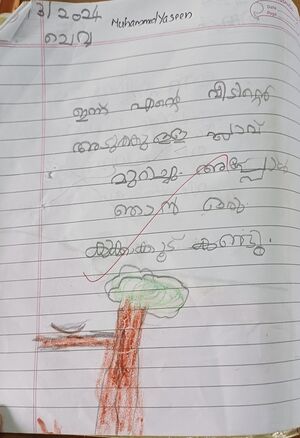 13/2024
ചൊവ്വ
Muhammed Yaseen
ഇന്ന് എന്റെ വീടിന്റെ
അടുത്തുള്ള പ്ലാവ്
മുറിച്ചു. അപ്പോൾ
ഞാൻ ഒരു
കാക്കക്കൂട് കണ്ടു.